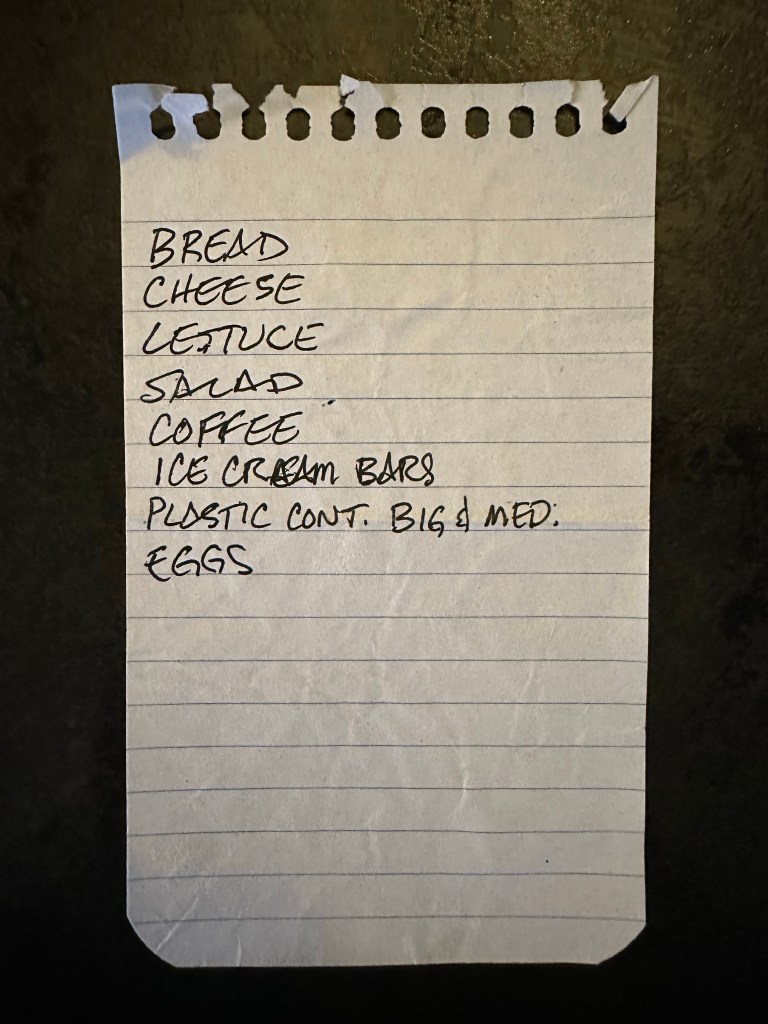 BREAD
CHEESE
LETTUCE
SALAD
COFFEE
ICE CREAM BARS
PLASTIC CONT. BIG & MED.
EGGS